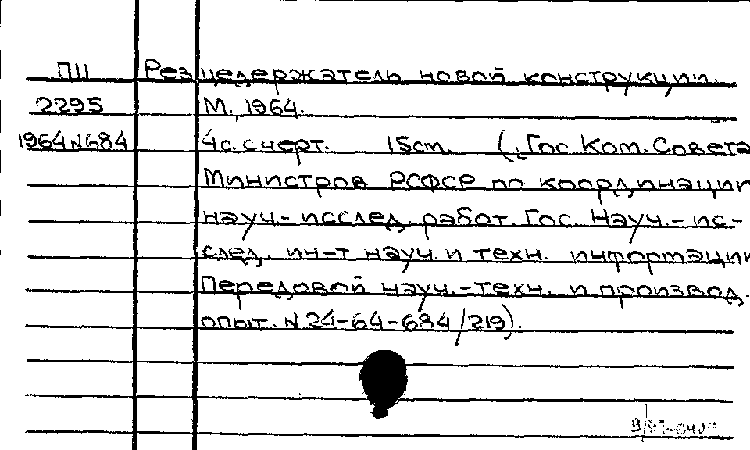 П11 Резцедержатель новой конструкции.
2295 М., 1964.
1964№684 4с. с черт. 15cm. (Гос. Ком. Совета
Министров РСФСР по координации
науч.-исслед. работ. Гос. Науч.-ис-
след. ин-т науч. и техн. информации
Передовой науч.-техн. и производ.
опыт. №24-64-684/219).